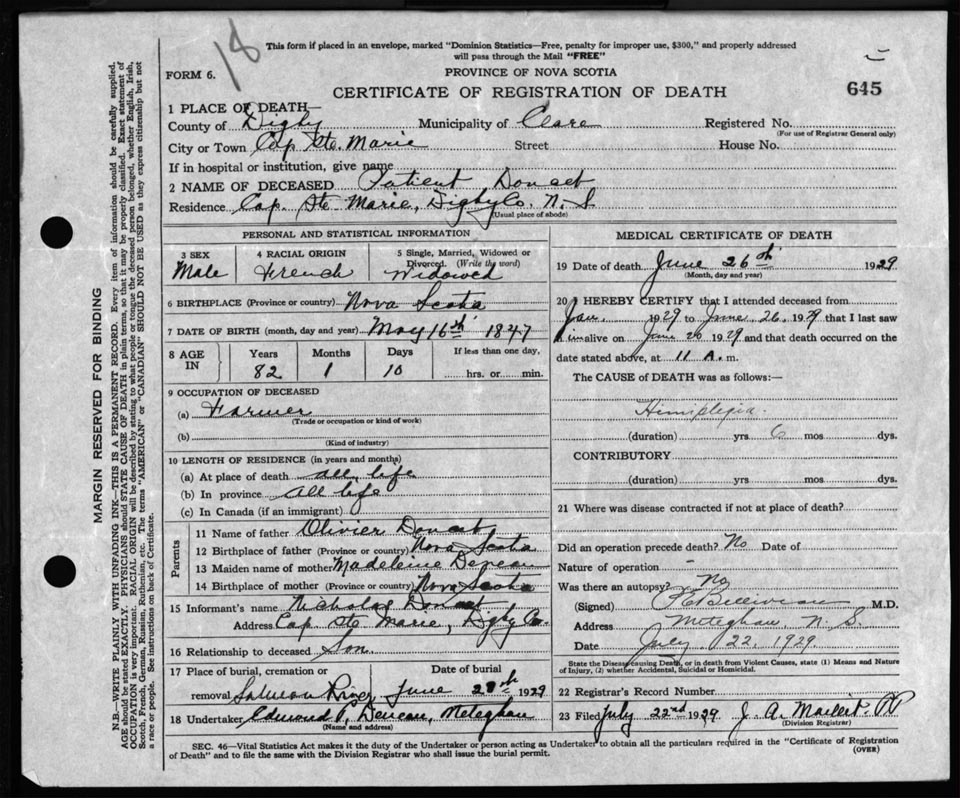 18
This form if placed in an envelope, marked "Dominion Statistics—Free, penalty for improper use, $300," and properly addressed
will pass through the Mail "FREE"
FORM 6.
PROVINCE OF NOVA SCOTIA
CERTIFICATE OF REGISTRATION OF DEATH
645
1 PLACE OF DEATH—
County of Digby Municipality of Clare Registered No.
(For use of Registrar General only)
City or Town Cap Ste. Marie Street House No.
If in hospital or institution, give name
2 NAME OF DECEASED Patient Doucet
Residence Cap. Ste Marie, Digby Co. N. S
(Usual place of abode)
PERSONAL AND STATISTICAL INFORMATION
3 SEX
Male
4 RACIAL ORIGIN
French
5 Single, Married, Widowed or
Divorced. (Write the word)
Widowed
6 BIRTHPLACE (Province or country) Nova Scotia
7 DATE OF BIRTH (month, day and year) May 16th 1847
8 AGE IN
Years Months Days If less than one day,
82 1 10 hrs. or min.
9 OCCUPATION OF DECEASED
(a) Farmer
(Trade or occupation or kind of work)
(b)
(Kind of industry)
10 LENGTH OF RESIDENCE (in years and months)
(a) At place of death all life
(b) In province all life
(c) In Canada (if an immigrant)
Parents
11 Name of father Olivier Doucet
12 Birthplace of father (Province or country) Nova Scotia
13 Maiden name of mother Madeleine Deveau
14 Birthplace of mother (Province or country) Nova Scotia
15 Informant's name Nicholas Doucet
Address Cap Ste Marie, Digby Co.
16 Relationship to deceased Son
17 Place of burial, cremation or Date of burial
removal Salmon River June 28th 1929
18 Undertaker Edmond P. Deveau, Meteghan
(Name and address)
MEDICAL CERTIFICATE OF DEATH
19 Date of death June 26th 1929
(Month, day and year)
20 I HEREBY CERTIFY that I attended deceased from
Jan. 1929 to June 26, 1929 that I last saw
him alive on June 20 1929 and that death occurred on the
date stated above, at 11 A. m.
The CAUSE OF DEATH was as follows:—
Himiplegia.
(duration) yrs 6 mos dys.
CONTRIBUTORY
(duration) yrs. mos. dys.
21 Where was disease contracted if not at place of death?
Did an operation precede death? No Date of
Nature of operation
Was there an autopsy? No
(Signed) Belliveau M.D.
Address Meteghan, N. S.
Date July 22, 1929
State the Disease causing Death, or in death from Violent Causes, state (1) Means and Nature
of Injury, (2) whether Accidental, Suicidal or Homicidal.
22 Registrar's Record Number
23 Filed July 22nd 1929 J. A. Maillet
(Division Registrar)
SEC. 46—Vital Statistics Act makes it the duty of the Undertaker or person acting as Undertaker to obtain all the particulars required in the "Certificate of Registration
of Death" and to file the same with the Division Registrar who shall issue the burial permit.
(OVER)
MARGIN RESERVED FOR BINDING
N.B.—WRITE PLAINLY, WITH UNFADING INK—THIS IS A PERMANENT RECORD. Every item of information should be carefully supplied.
AGE should be stated EXACTLY. PHYSICIANS should STATE CAUSE OF DEATH in plain terms, so that it may be properly classified. Exact statement of
OCCUPATION is very important. RACIAL ORIGIN will be described by stating to what people or tongue the deceased person belonged, whether English, Irish,
Scotch, French, German, Russian, Ruthenian, etc. The terms "AMERICAN" or "CANADIAN" SHOULD NOT BE USED as they express citizenship but not
a race or people. See instructions on back of Certificate.